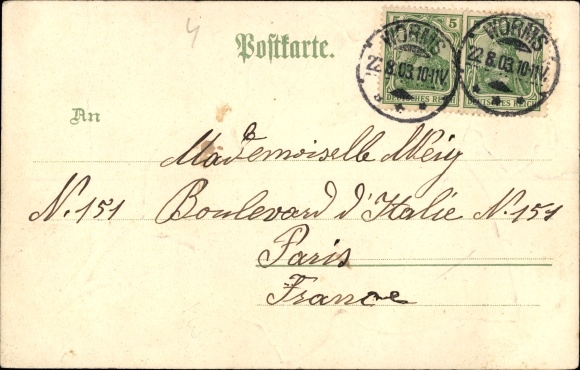 4
Postkarte.
5 5
WORMS WORMS
22.8.03.10-11V. 22.8.03.10-11V.
DEUTSCHES REICH DEUTSCHES REICH
An
Mademoiselle Meig
N. 151 Boulevard d'Italie N. 151
Paris
France